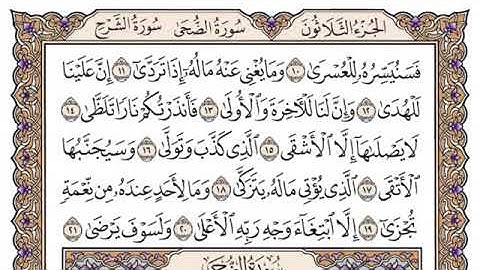 الجزء الثلاثون سورة الضحى سورة الشرح
فَسَنُيَسِّرُهُۥ لِلْعُسْرَىٰ ١٠ وَمَا يُغْنِى عَنْهُ مَالُهُۥٓ إِذَا تَرَدَّىٰٓ ١١ إِنَّ عَلَيْنَا
لَلْهُدَىٰ ١٢ وَإِنَّ لَنَا لَلْـَٔاخِرَةَ وَٱلْأُولَىٰ ١٣ فَأَنذَرْتُكُمْ نَارًا تَلَظَّىٰ ١٤
لَا يَصْلَىٰهَآ إِلَّا ٱلْأَشْقَى ١٥ ٱلَّذِى كَذَّبَ وَتَوَلَّىٰ ١٦ وَسَيُجَنَّبُهَا
ٱلْأَتْقَى ١٧ ٱلَّذِى يُؤْتِى مَالَهُۥ يَتَزَكَّىٰ ١٨ وَمَا لِأَحَدٍ عِندَهُۥ مِن نِّعْمَةٍ
تُجْزَىٰٓ ١٩ إِلَّا ٱبْتِغَآءَ وَجْهِ رَبِّهِ ٱلْأَعْلَىٰ ٢٠ وَلَسَوْفَ يَرْضَىٰ ٢١
سورة الضحى